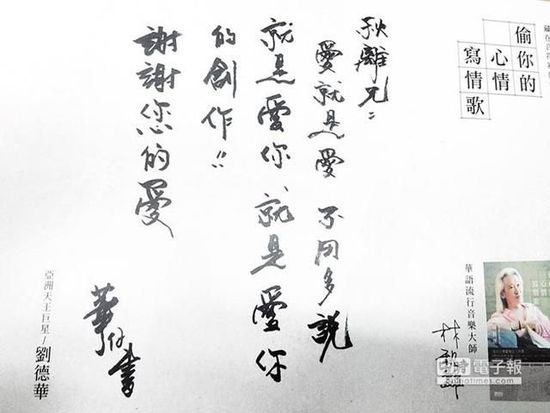 偷你的
心情
寫情歌
華語流行音樂大師
林秋離
秋離兄：
愛就是愛 不用多說
就是愛你 就是愛你
的創作!!
謝謝您的愛
華仔書
亞洲天王巨星/劉德華
電子報
chinatimes.com